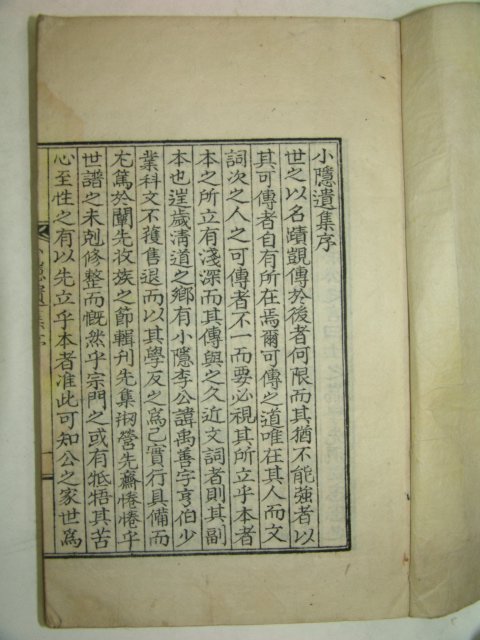 小隱遺集序
世之以名蹟覬傳於後者何限而其猶不能強者以
其可傳者自有所在焉爾可傳之道唯在其人而文
詞次之人之可傳者不一而要必視其所立乎本者
本之所立有淺深而其傳與之久近文詞者則其副
本也逞歲淸道之鄕有小隱李公諱禹善字亨伯少
業科文不獲售退而以其學反之爲己實行具備而
尤篤於闡先收族之節輯刊先集刱營先齋惓惓乎
世譜之未剋修整而慨然乎宗門之或有牴牾其苦
心至性之有以先立乎本者准此可知公之家世爲